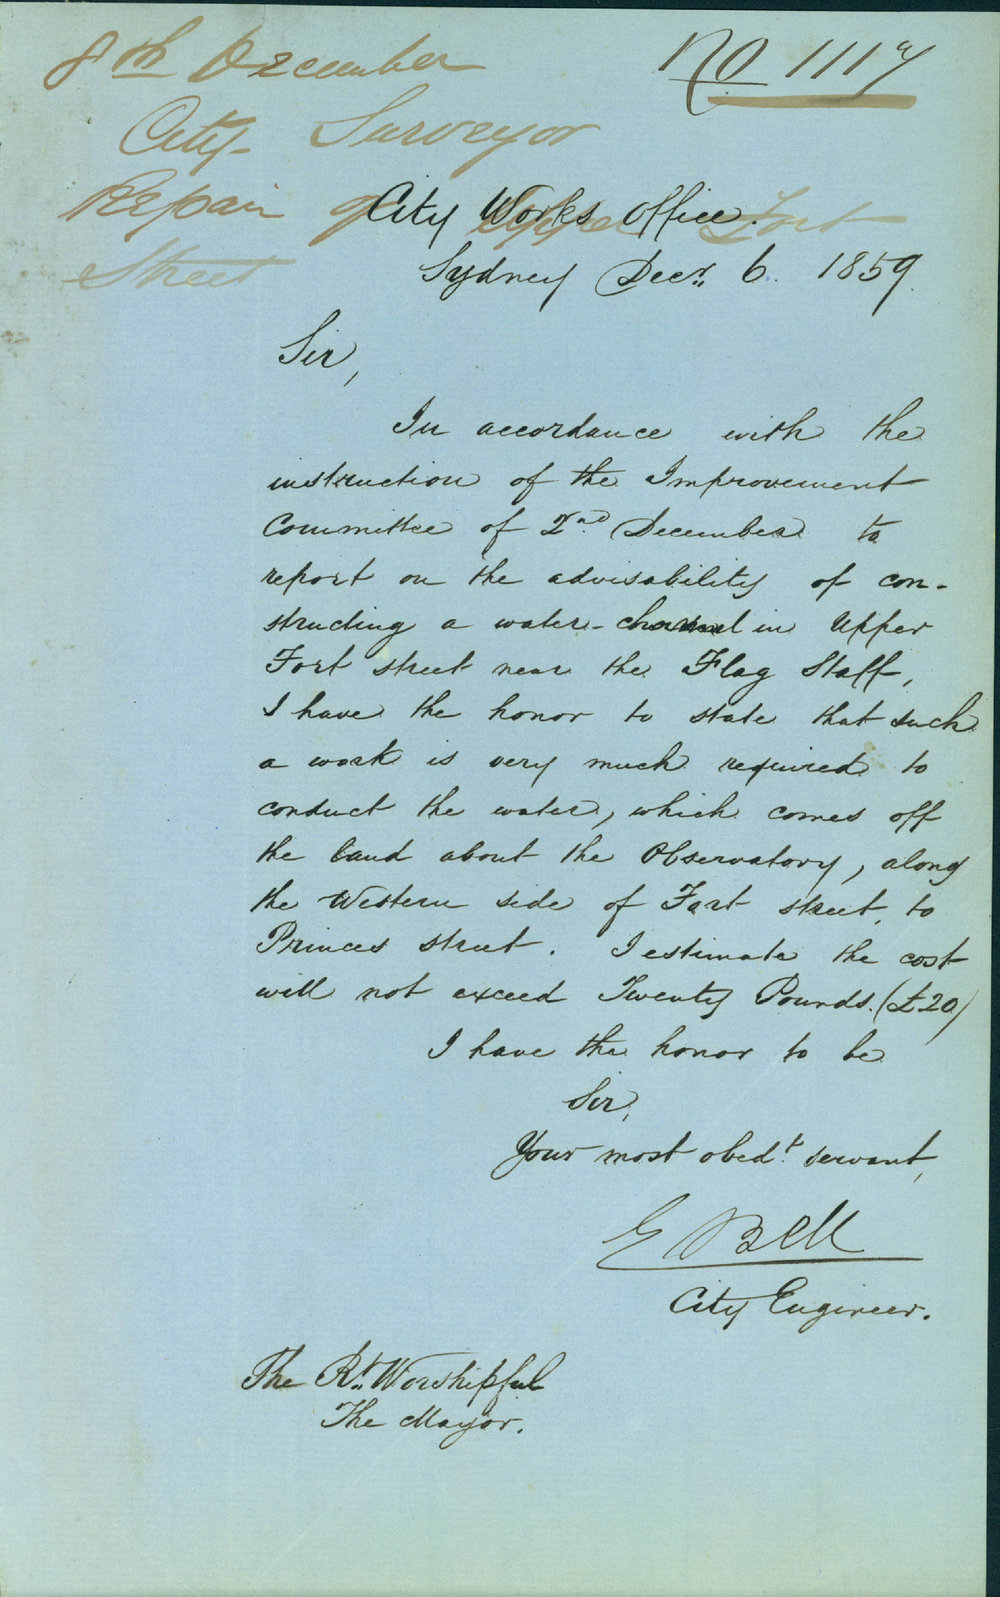 8th December
No 1117
City Surveyor
Repair of Upper Fort
Street
City Works Office.
Sydney Decr. 6. 1859.
Sir,
In accordance with the
instruction of the Improvement
Committee of 2nd. December to
report on the advisability of con-
structing a water-channel in Upper
Fort street near the Flag Staff,
I have the honor to state that such
a work is very much required to
conduct the water, which comes off
the land about the Observatory, along
the Western side of Fort street, to
Princes street. I estimate the cost
will not exceed Twenty Pounds. (£20)
I have the honor to be
Sir,
Your most obedt. servant,
E Bell
City Engineer.
The Rt. Worshipful
The Mayor.